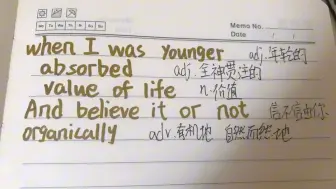 Memo No.
Mo Tu We Th Fr Sa Su
Date / /
when I was younger adj.年轻的
absorbed adj.全神贯注的
value of life n.价值
And believe it or not 信不信由你
organically adv.有机地 自然而然地